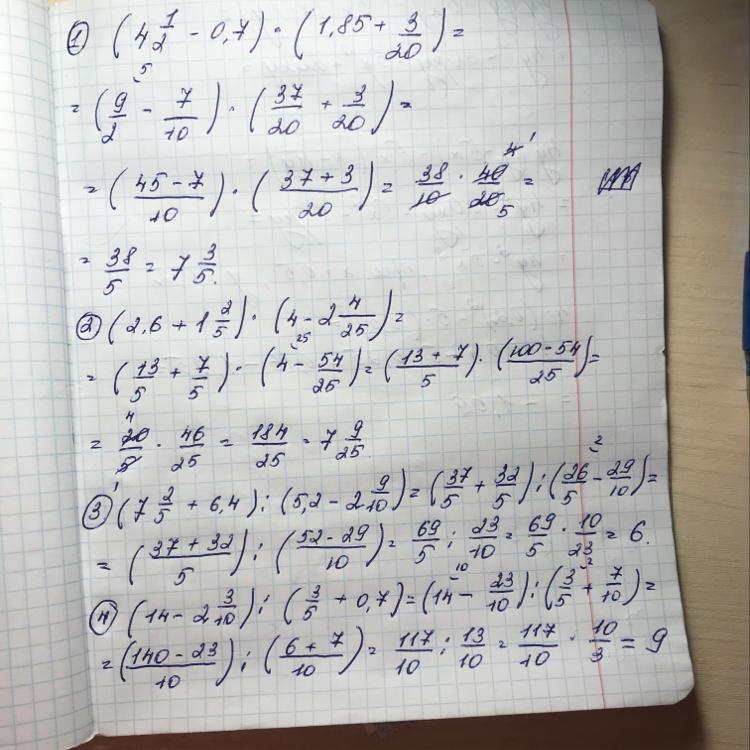 ① (4 1/2 - 0,7) · (1,85 + 3/20) =
= (9/2 - 7/10) · (37/20 + 3/20) =
= (45-7/10) · (37+3/20) = 38/10 · 40/20 =
= 38/5 = 7 3/5.
② (2,6 + 1 2/5) · (4 - 2 4/25) =
= (13/5 + 7/5) · (4 - 54/25) = (13+7/5) · (100-54/25) =
= 20/5 · 46/25 = 184/25 = 7 9/25.
③ (7 2/5 + 6,4) : (5,2 - 2 9/10) = (37/5 + 32/5) : (26/5 - 29/10) =
= (37+32/5) : (52-29/10) = 69/5 : 23/10 = 69/5 · 10/23 = 6.
④ (14 - 2 3/10) : (3/5 + 0,7) = (14 - 23/10) : (3/5 + 7/10) =
= (140-23/10) : (6+7/10) = 117/10 : 13/10 = 117/10 · 10/3 = 9